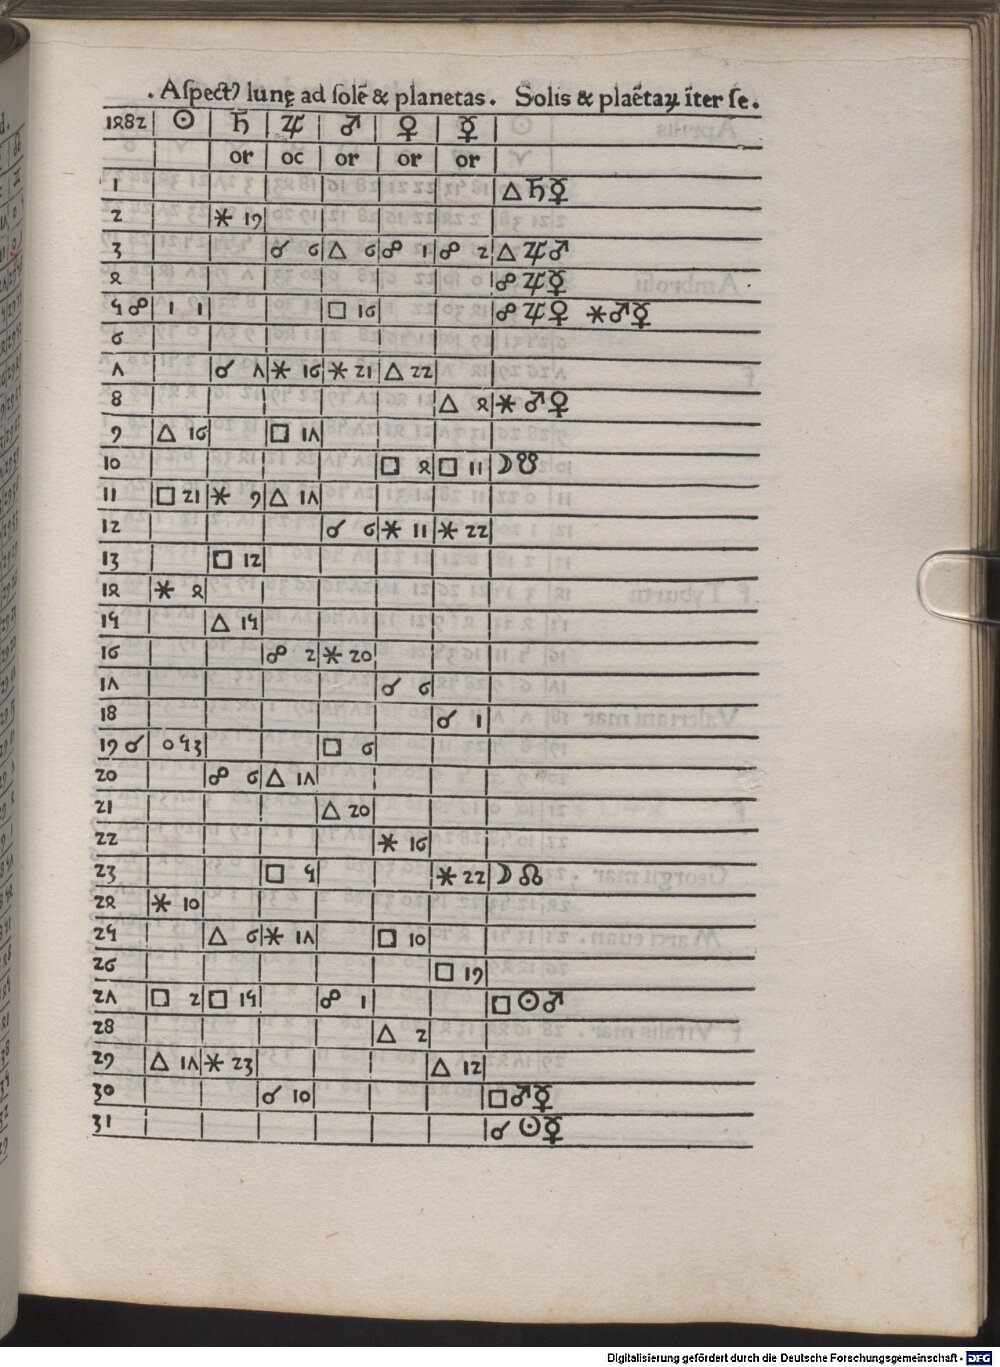 . Aspectꝰ lunę ad solē & planetas. Solis & plaētaꝝ īter se.
1482 ☉ ♄ ♃ ♂ ♀ ☿
or oc or or or
1 △ ♄ ☿
2 ✶ 19
3 ☌ 6 △ 6 ☍ 1 ☍ 2 △ ♃ ♂
4 ☍ ♃ ☿
5 ☍ 1 1 □ 16 ☍ ♃ ♀ ✶ ♂ ☿
6
7 ☌ 7 ✶ 16 ✶ 21 △ 22
8 △ 4 ✶ ♂ ♀
9 △ 16 □ 17
10 □ 4 □ 11 ☽ ☋
11 □ 21 ✶ 9 △ 17
12 ☌ 6 ✶ 11 ✶ 22
13 □ 12
14 ✶ 4
15 △ 15
16 ☍ 2 ✶ 20
17 ☌ 6
18 ☌ 1
19 ☌ 0 53 □ 6
20 ☍ 6 △ 17
21 △ 20
22 ✶ 16
23 □ 5 ✶ 22 ☽ ☊
24 ✶ 10
25 △ 6 ✶ 17 □ 10
26 □ 19
27 □ 2 □ 15 ☍ 1 □ ☉ ♂
28 △ 2
29 △ 17 ✶ 23 △ 12
30 ☌ 10 □ ♂ ☿
31 ☌ ☉ ☿
Digitalisierung gefördert durch die Deutsche Forschungsgemeinschaft - DFG